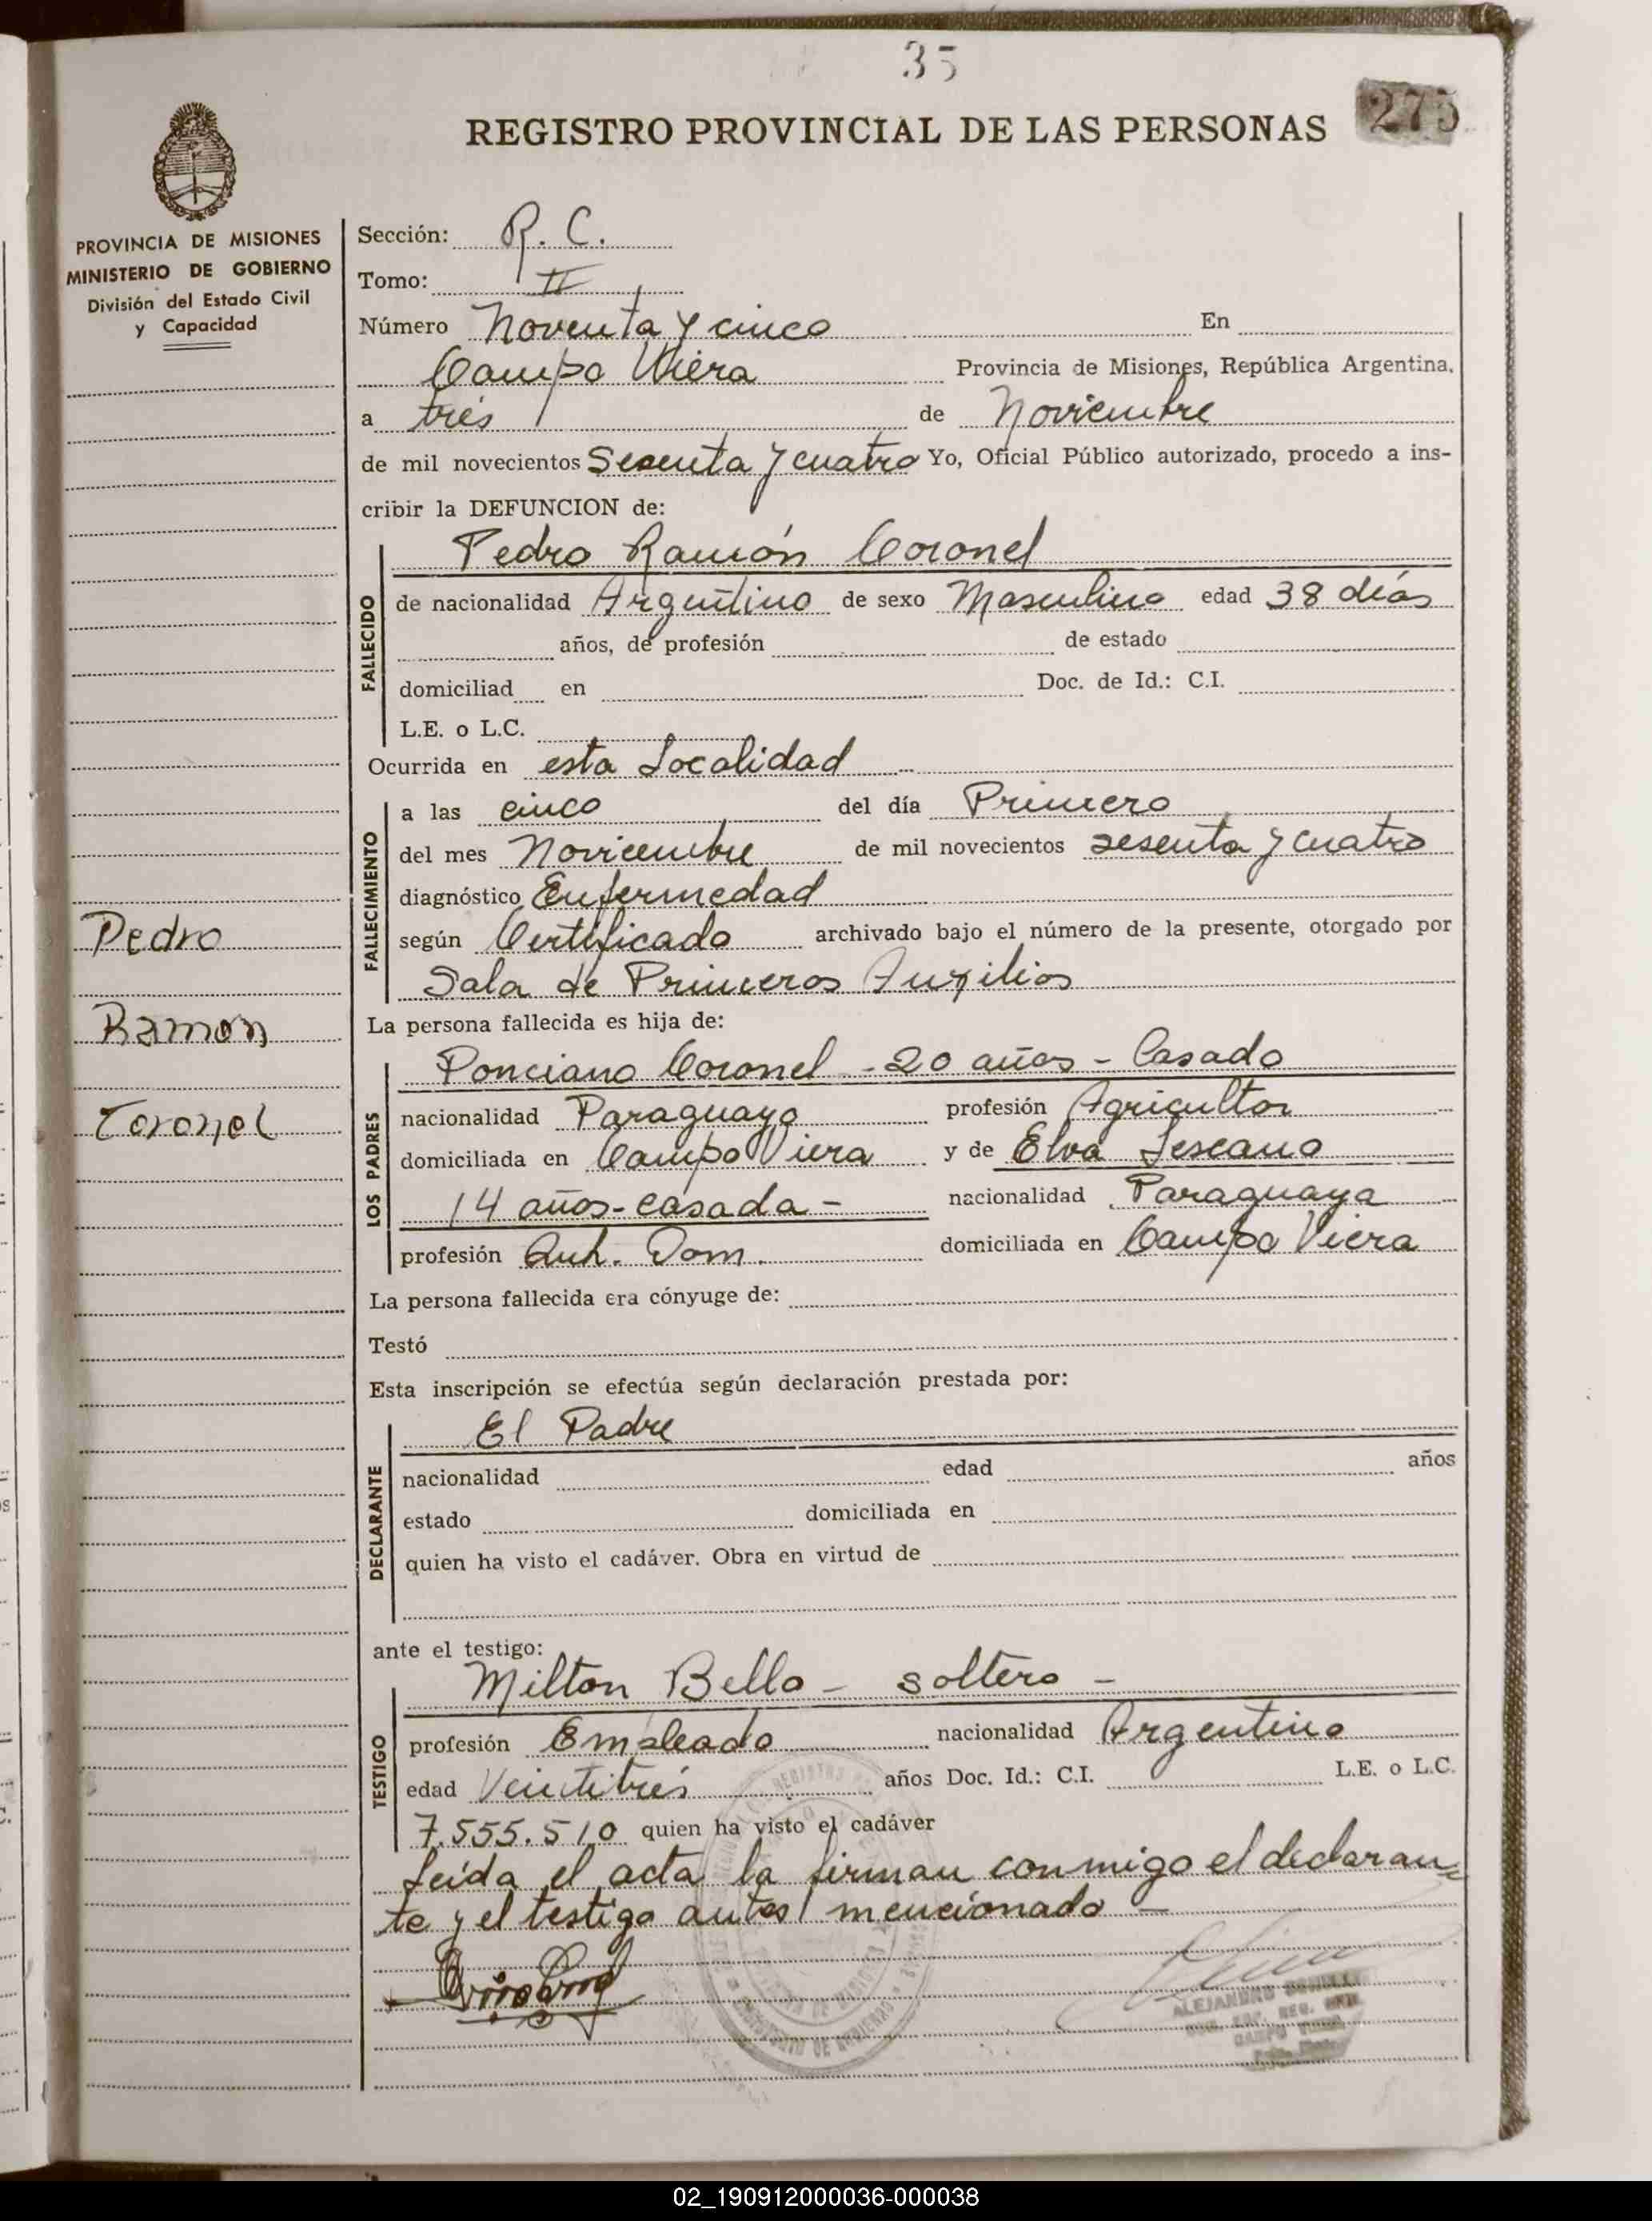 35
275
REGISTRO PROVINCIAL DE LAS PERSONAS
PROVINCIA DE MISIONES
MINISTERIO DE GOBIERNO
División del Estado Civil
y Capacidad
Pedro
Ramon
Coronel
Sección: R. C.
Tomo: II
Número Noventa y cinco En
Campo Viera Provincia de Misiones, República Argentina,
a tres de Noviembre
de mil novecientos Sesenta y cuatro Yo, Oficial Público autorizado, procedo a ins-
cribir la DEFUNCION de:
FALLECIDO
Pedro Ramón Coronel
de nacionalidad Argentino de sexo Masculino edad 38 días
años, de profesión de estado
domiciliad en Doc. de Id.: C.I.
L.E. o L.C.
Ocurrida en esta Localidad
FALLECIMIENTO
a las cinco del día Primero
del mes Noviembre de mil novecientos sesenta y cuatro
diagnóstico Enfermedad
según Certificado archivado bajo el número de la presente, otorgado por
Sala de Primeros Auxilios
La persona fallecida es hija de:
LOS PADRES
Ponciano Coronel - 20 años - Casado
nacionalidad Paraguayo profesión Agricultor
domiciliada en Campo Viera y de Elva Lescano
14 años - casada - nacionalidad Paraguaya
profesión Quh. Dom. domiciliada en Campo Viera
La persona fallecida era cónyuge de:
Testó
Esta inscripción se efectúa según declaración prestada por:
DECLARANTE
El Padre
nacionalidad edad años
estado domiciliada en
quien ha visto el cadáver. Obra en virtud de
ante el testigo:
TESTIGO
Milton Bello - soltero -
profesión Empleado nacionalidad Argentino
edad Veintitrés años Doc. Id.: C.I. L.E. o L.C.
7.555.510 quien ha visto el cadáver
Leída el acta la firman conmigo el declaran=
te y el testigo antes mencionado -
ALEJANDRO
02_190912000036-000038